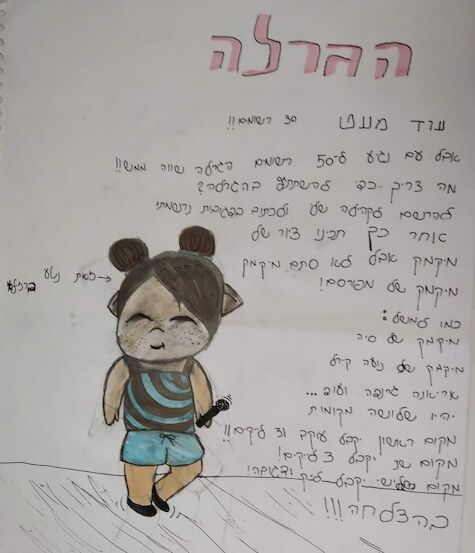 הגרלה
עוד מעט 30 רשומים!!
אבל עם נגיע ל-50 רשומים הגרלה שווה ממש!!
מה צריך כדי להשתתף בהגרלה?
להרשם לקהילה שלי ולכתוב בתגובות נרשמתי
אחר כך תכינו ציור של
מיקמק אבל לא סתם מיקמק
מיקמק של מפורסם!
זאת נטע ברזלי
כמו למשל:
מיקמק של סיה
מיקמק של נועה קירל
אריאנה גרנדה ועוד...
יהיו שלישה מקומות
מקום ראשון יקבל עוקב ו3 ליקים!!
מקום שני יקבל 3 ליקים!
מקום שלישי יקבל לייק ותגובה!
בהצלחה!!!